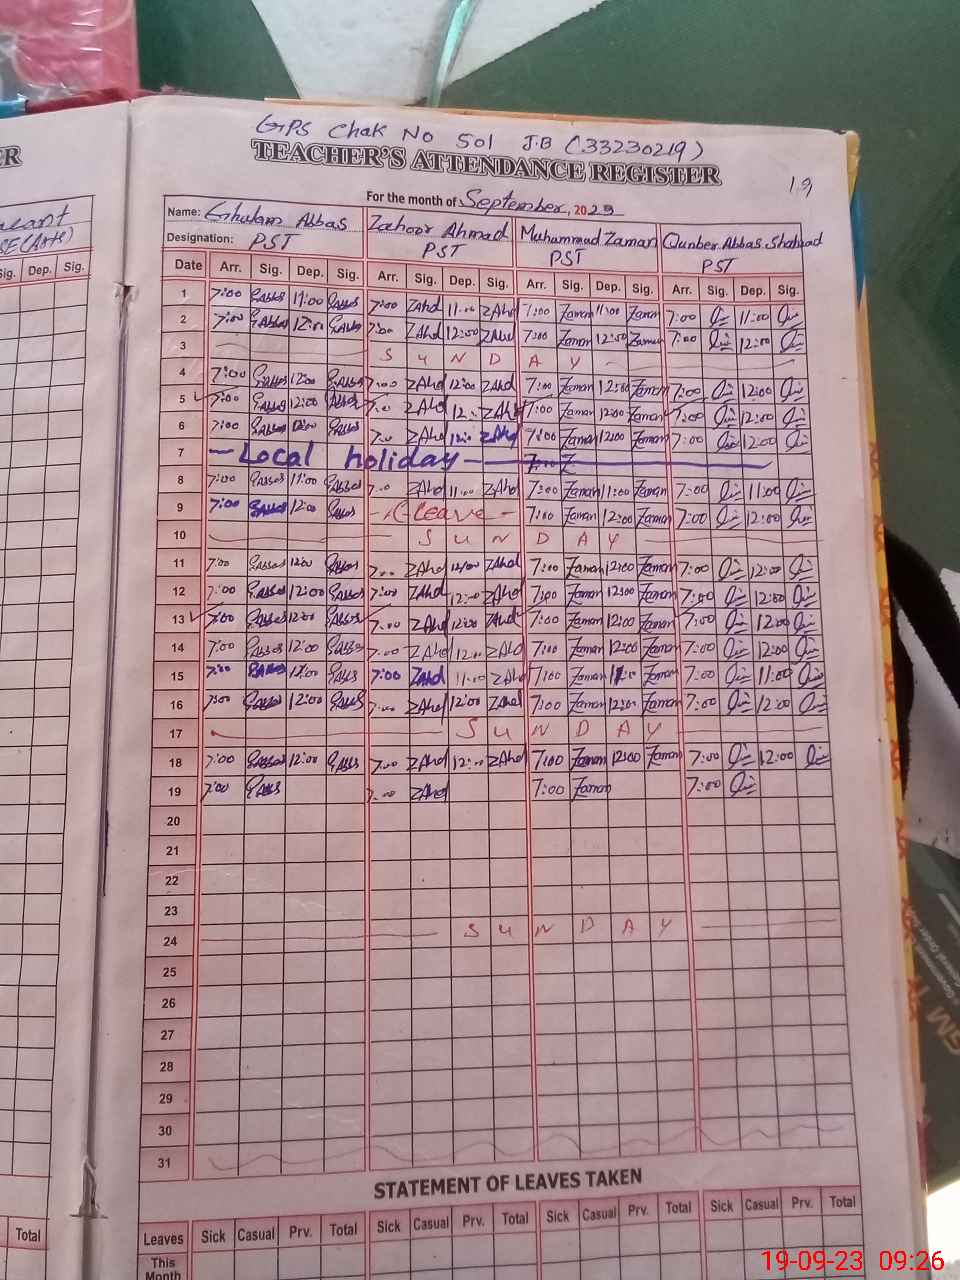 GPS Chak No 501 J.B (33230219)
ER
TEACHER'S ATTENDANCE REGISTER
19
For the month of September, 2023
Name: Ghulam Abbas Zahoor Ahmad Muhammad Zaman Qunber Abbas Shahzad
Designation: PST PST PST PST
Sig. Dep. Sig.
Date Arr. Sig. Dep. Sig. Arr. Sig. Dep. Sig. Arr. Sig. Dep. Sig. Arr. Sig. Dep. Sig.
1 7:00 Gabbs 11:00 Gabbs 7:00 ZAhd 11:00 ZAhd 7:00 Zaman 11:00 Zaman 7:00 11:00
2 7:00 Gabbs 12:00 Gabbs 7:00 ZAhd 12:00 ZAhd 7:00 Zaman 12:00 Zaman 7:00 12:00
3 S U N D A Y
4 7:00 Gabbs 12:00 Gabbs 7:00 ZAhd 12:00 ZAhd 7:00 Zaman 12:00 Zaman 7:00 12:00
5 7:00 Gabbs 12:00 Gabbs 7:00 ZAhd 12:00 ZAhd 7:00 Zaman 12:00 Zaman 7:00 12:00
6 7:00 Gabbs 12:00 Gabbs 7:00 ZAhd 12:00 ZAhd 7:00 Zaman 12:00 Zaman 7:00 12:00
7 Local holiday
8 7:00 Gabbs 11:00 Gabbs 7:00 ZAhd 11:00 ZAhd 7:00 Zaman 11:00 Zaman 7:00 11:00
9 7:00 Gabbs 12:00 Gabbs C leave 7:00 Zaman 12:00 Zaman 7:00 12:00
10 S U N D A Y
11 7:00 Gabbs 12:00 Gabbs 7:00 ZAhd 12:00 ZAhd 7:00 Zaman 12:00 Zaman 7:00 12:00
12 7:00 Gabbs 12:00 Gabbs 7:00 ZAhd 12:00 ZAhd 7:00 Zaman 12:00 Zaman 7:00 12:00
13 7:00 Gabbs 12:00 Gabbs 7:00 ZAhd 12:00 ZAhd 7:00 Zaman 12:00 Zaman 7:00 12:00
14 7:00 Gabbs 12:00 Gabbs 7:00 ZAhd 12:00 ZAhd 7:00 Zaman 12:00 Zaman 7:00 12:00
15 7:00 Gabbs Gabbs 7:00 ZAhd 11:00 ZAhd 7:00 Zaman Zaman 7:00 11:00
16 7:00 Gabbs 12:00 Gabbs 7:00 ZAhd 12:00 ZAhd 7:00 Zaman 12:00 Zaman 7:00 12:00
17 S U N D A Y
18 7:00 Gabbs 12:00 Gabbs 7:00 ZAhd 12:00 ZAhd 7:00 Zaman 12:00 Zaman 7:00 12:00
19 7:00 Gabbs 7:00 ZAhd 7:00 Zaman 7:00
20
21
22
23
24 S U N D A Y
25
26
27
28
29
30
31
STATEMENT OF LEAVES TAKEN
Total
Leaves Sick Casual Prv. Total Sick Casual Prv. Total Sick Casual Prv. Total Sick Casual Prv. Total
This
Month
19-09-23 09:26